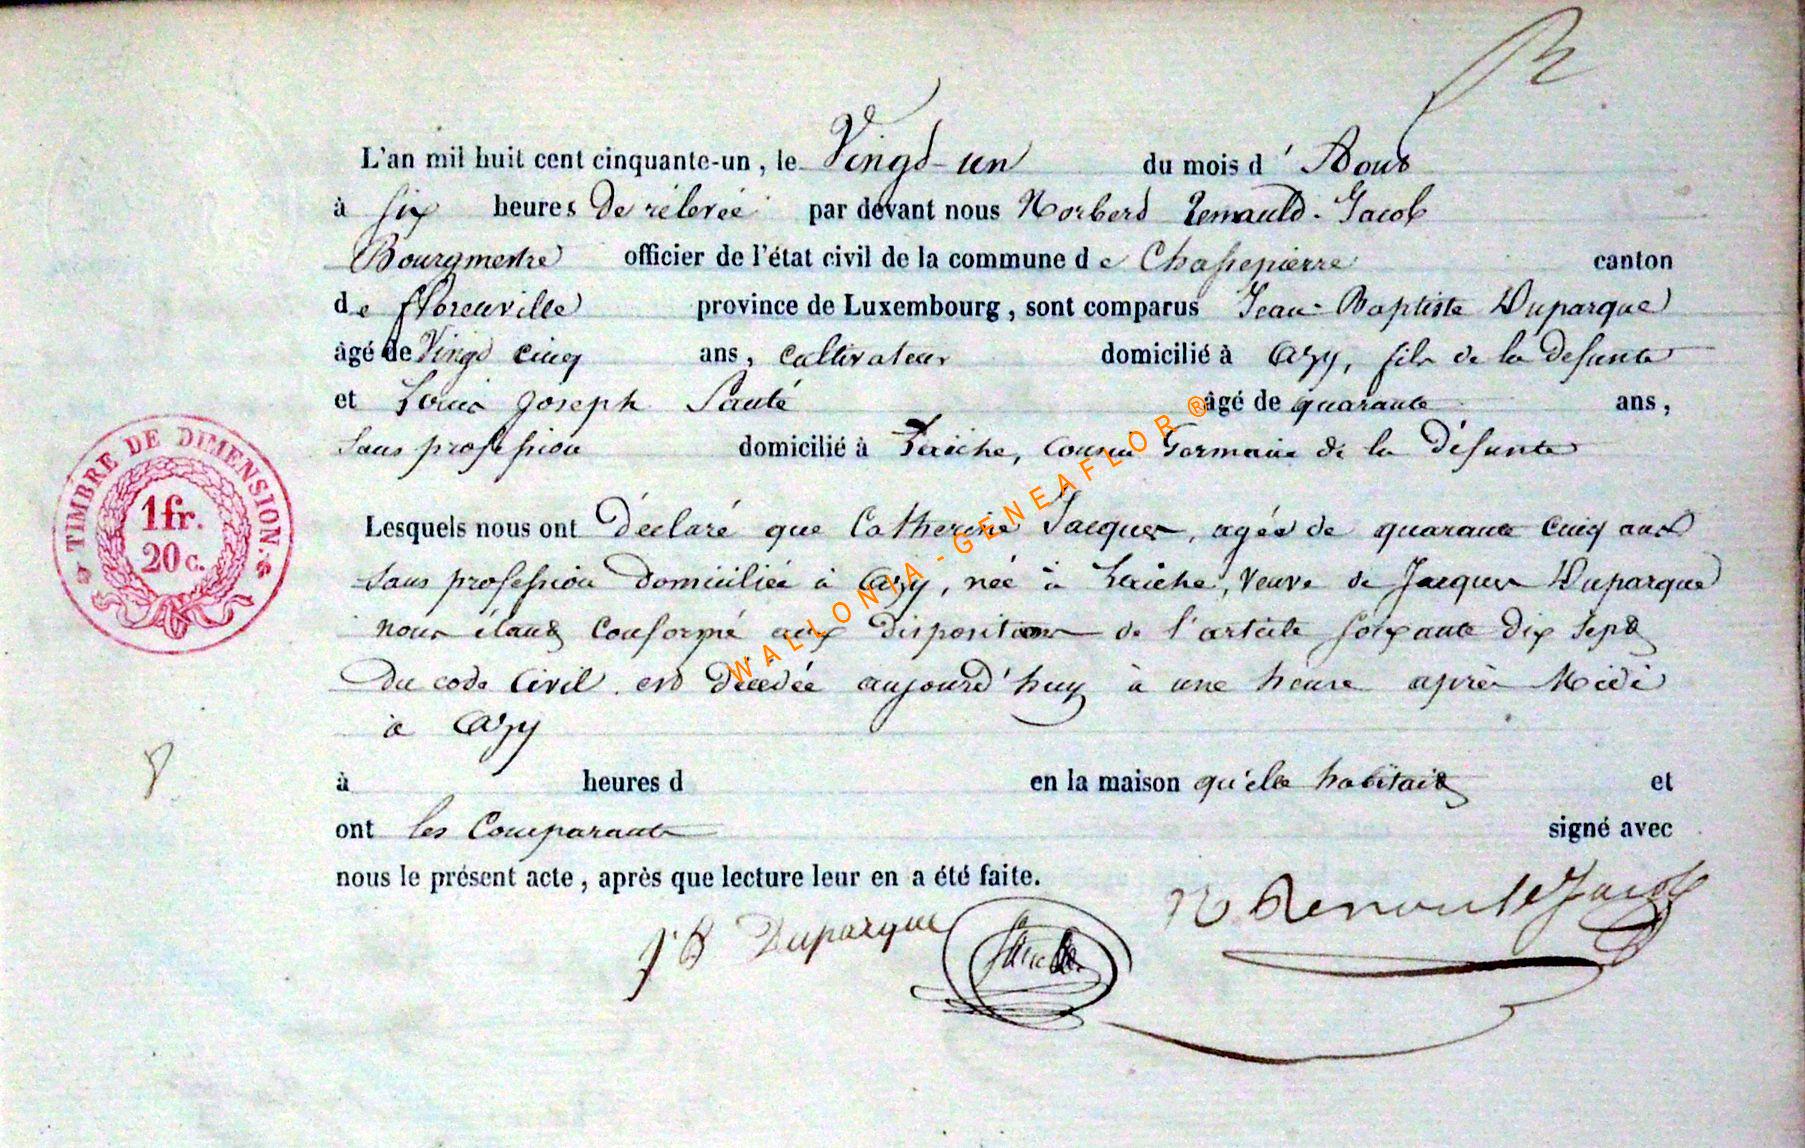 L'an mil huit cent cinquante-un, le Vingt-un du mois d' Aout
à six heures De rélevée par devant nous Norbert Renauld-Jacob
Bourgmestre officier de l'état civil de la commune de Chassepierre canton
de florenville province de Luxembourg, sont comparus Jean-Baptiste Duparque
âgé de Vingt cinq ans, cultivateur domicilié à Azy, fils de la defunte
et Louis Joseph âgé de quarante ans,
sans profession domicilié à Laiche, cousin Germain de la Défunte
Lesquels nous ont Déclaré que Catherine Jacques, agée de quarante cinq ans
sans profession Domiciliée à Azy, née à Laiche, Veuve de Jacques Duparque
nous étant conformé aux dispositions de l'article soixante dix sept
Du code Civil. est Décédée aujourd'huy à une heure après Midi
à Azy
à heures d en la maison qu'elle habitait et
ont les Comparants signé avec
nous le présent acte, après que lecture leur en a été faite.
J B Duparque
N Renauld Jacob
TIMBRE DE DIMENSION.
1fr.
20c.
WALLONIA-GENEAFLOR ®